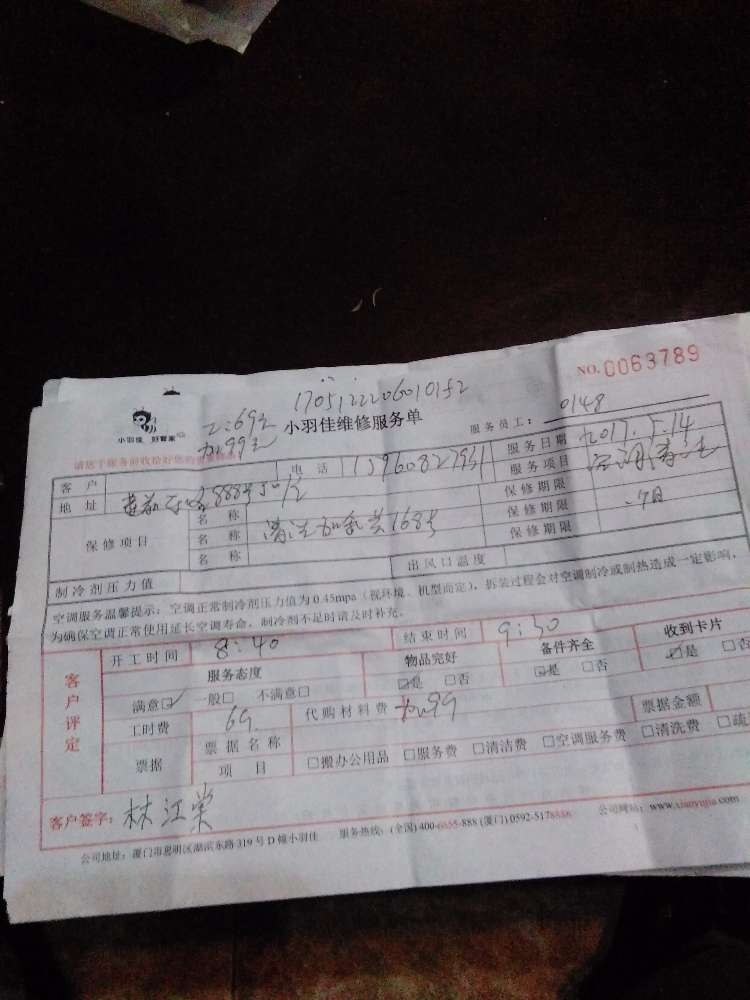 NO.0063789
1705122206010152
工:69元
加:99元
小羽佳 好管家
小羽佳维修服务单
服务员工: 0148
客户 电话 15960827951 服务日期 2017.5.14
地址 888号501室 服务项目 空调清洗
保修项目 名称 保修期限
名称 清洗加氨 168号 保修期限 月
名称 保修期限
制冷剂压力值 出风口温度
空调服务温馨提示:空调正常制冷剂压力值为0.45mpa(视环境、机型而定),拆装过程会对空调制冷或制热造成一定影响,
为确保空调正常使用延长空调寿命,制冷剂不足时请及时补充。
客户评定
开工时间 8:40 结束时间 9:30
服务态度 物品完好 备件齐全 收到卡片
满意☑ 一般□ 不满意□ ☑是 □否 ☑是 □否 ☑是 □否
工时费 69 代购材料费 加99 票据金额
票据 票据名称 □搬办公用品 □服务费 □清洁费 □空调服务费 □清洗费 □疏
项目
客户签字: 林江棠
公司地址:厦门市思明区湖滨东路319号D幢小羽佳 服务热线:(全国)400-6655-888(厦门)0592-5178888 公司网站:www.xiaoyujia.com